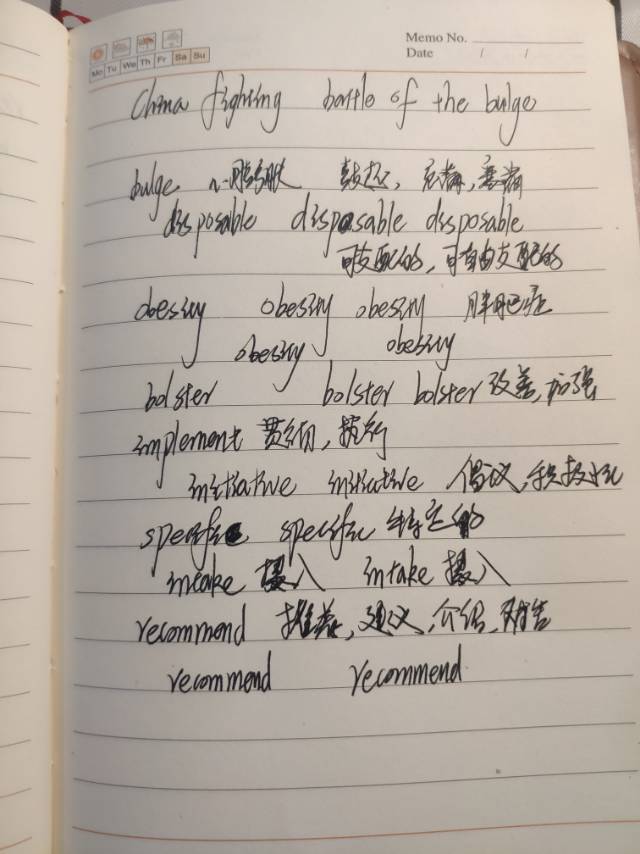 Memo No.
Mo Tu We Th Fr Sa Su
Date / /
China fighting battle of the bulge
bulge n. 鼓起, 充满, 塞满
disposable disposable disposable
可支配的, 可自由支配的
obesity obesity obesity 肥胖症
obesity obesity
bolster bolster bolster 改善, 加强
implement 贯彻, 执行
initiative initiative 倡议, 积极性
specific specific 特定的
intake 摄入 intake 摄入
recommend 推荐, 建议, 介绍, 劝告
recommend recommend